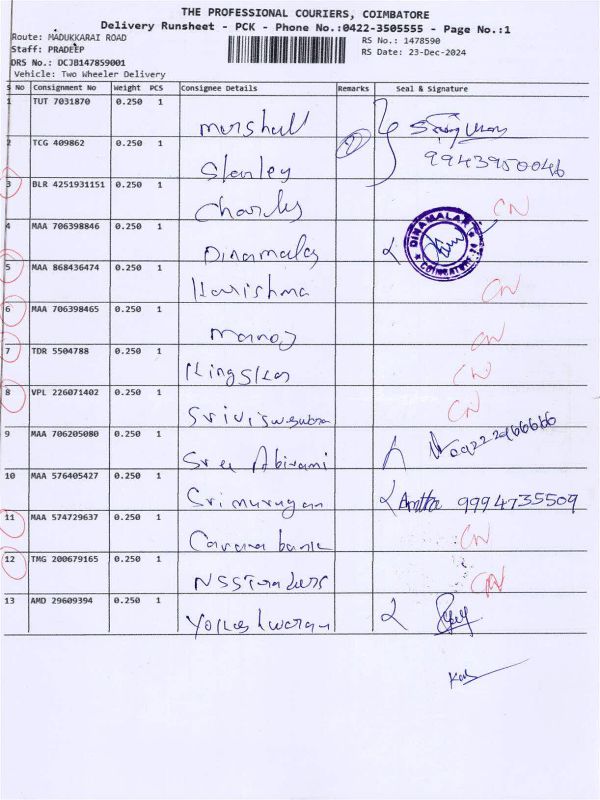 THE PROFESSIONAL COURIERS, COIMBATORE
Delivery Runsheet - PCK - Phone No.:0422-3505555 - Page No.:1
Route: MADUKKARAI ROAD
RS No.: 1478590
Staff: PRADEEP
RS Date: 23-Dec-2024
DRS No.: DCJB147859001
Vehicle: Two Wheeler Delivery
S No Consignment No Weight PCS Consignee Details Remarks Seal & Signature
1 TUT 7031870 0.250 1 Marshall
2 TCG 409862 0.250 1 Stanley 9943950046
3 BLR 4251931151 0.250 1 Charles CN
4 MAA 706398846 0.250 1 Dinamalar DINAMALAR COIMBATORE
5 MAA 868436474 0.250 1 Harishma CN
6 MAA 706398465 0.250 1 Manoj CN
7 TDR 5504788 0.250 1 CN
8 VPL 226071402 0.250 1 CN
9 MAA 706205080 0.250 1 Sree Abirami
10 MAA 576405427 0.250 1 Srimurugan 9994735509
11 MAA 574729637 0.250 1 Canara bank CN
12 TMG 200679165 0.250 1 CN
13 AMD 29609394 0.250 1